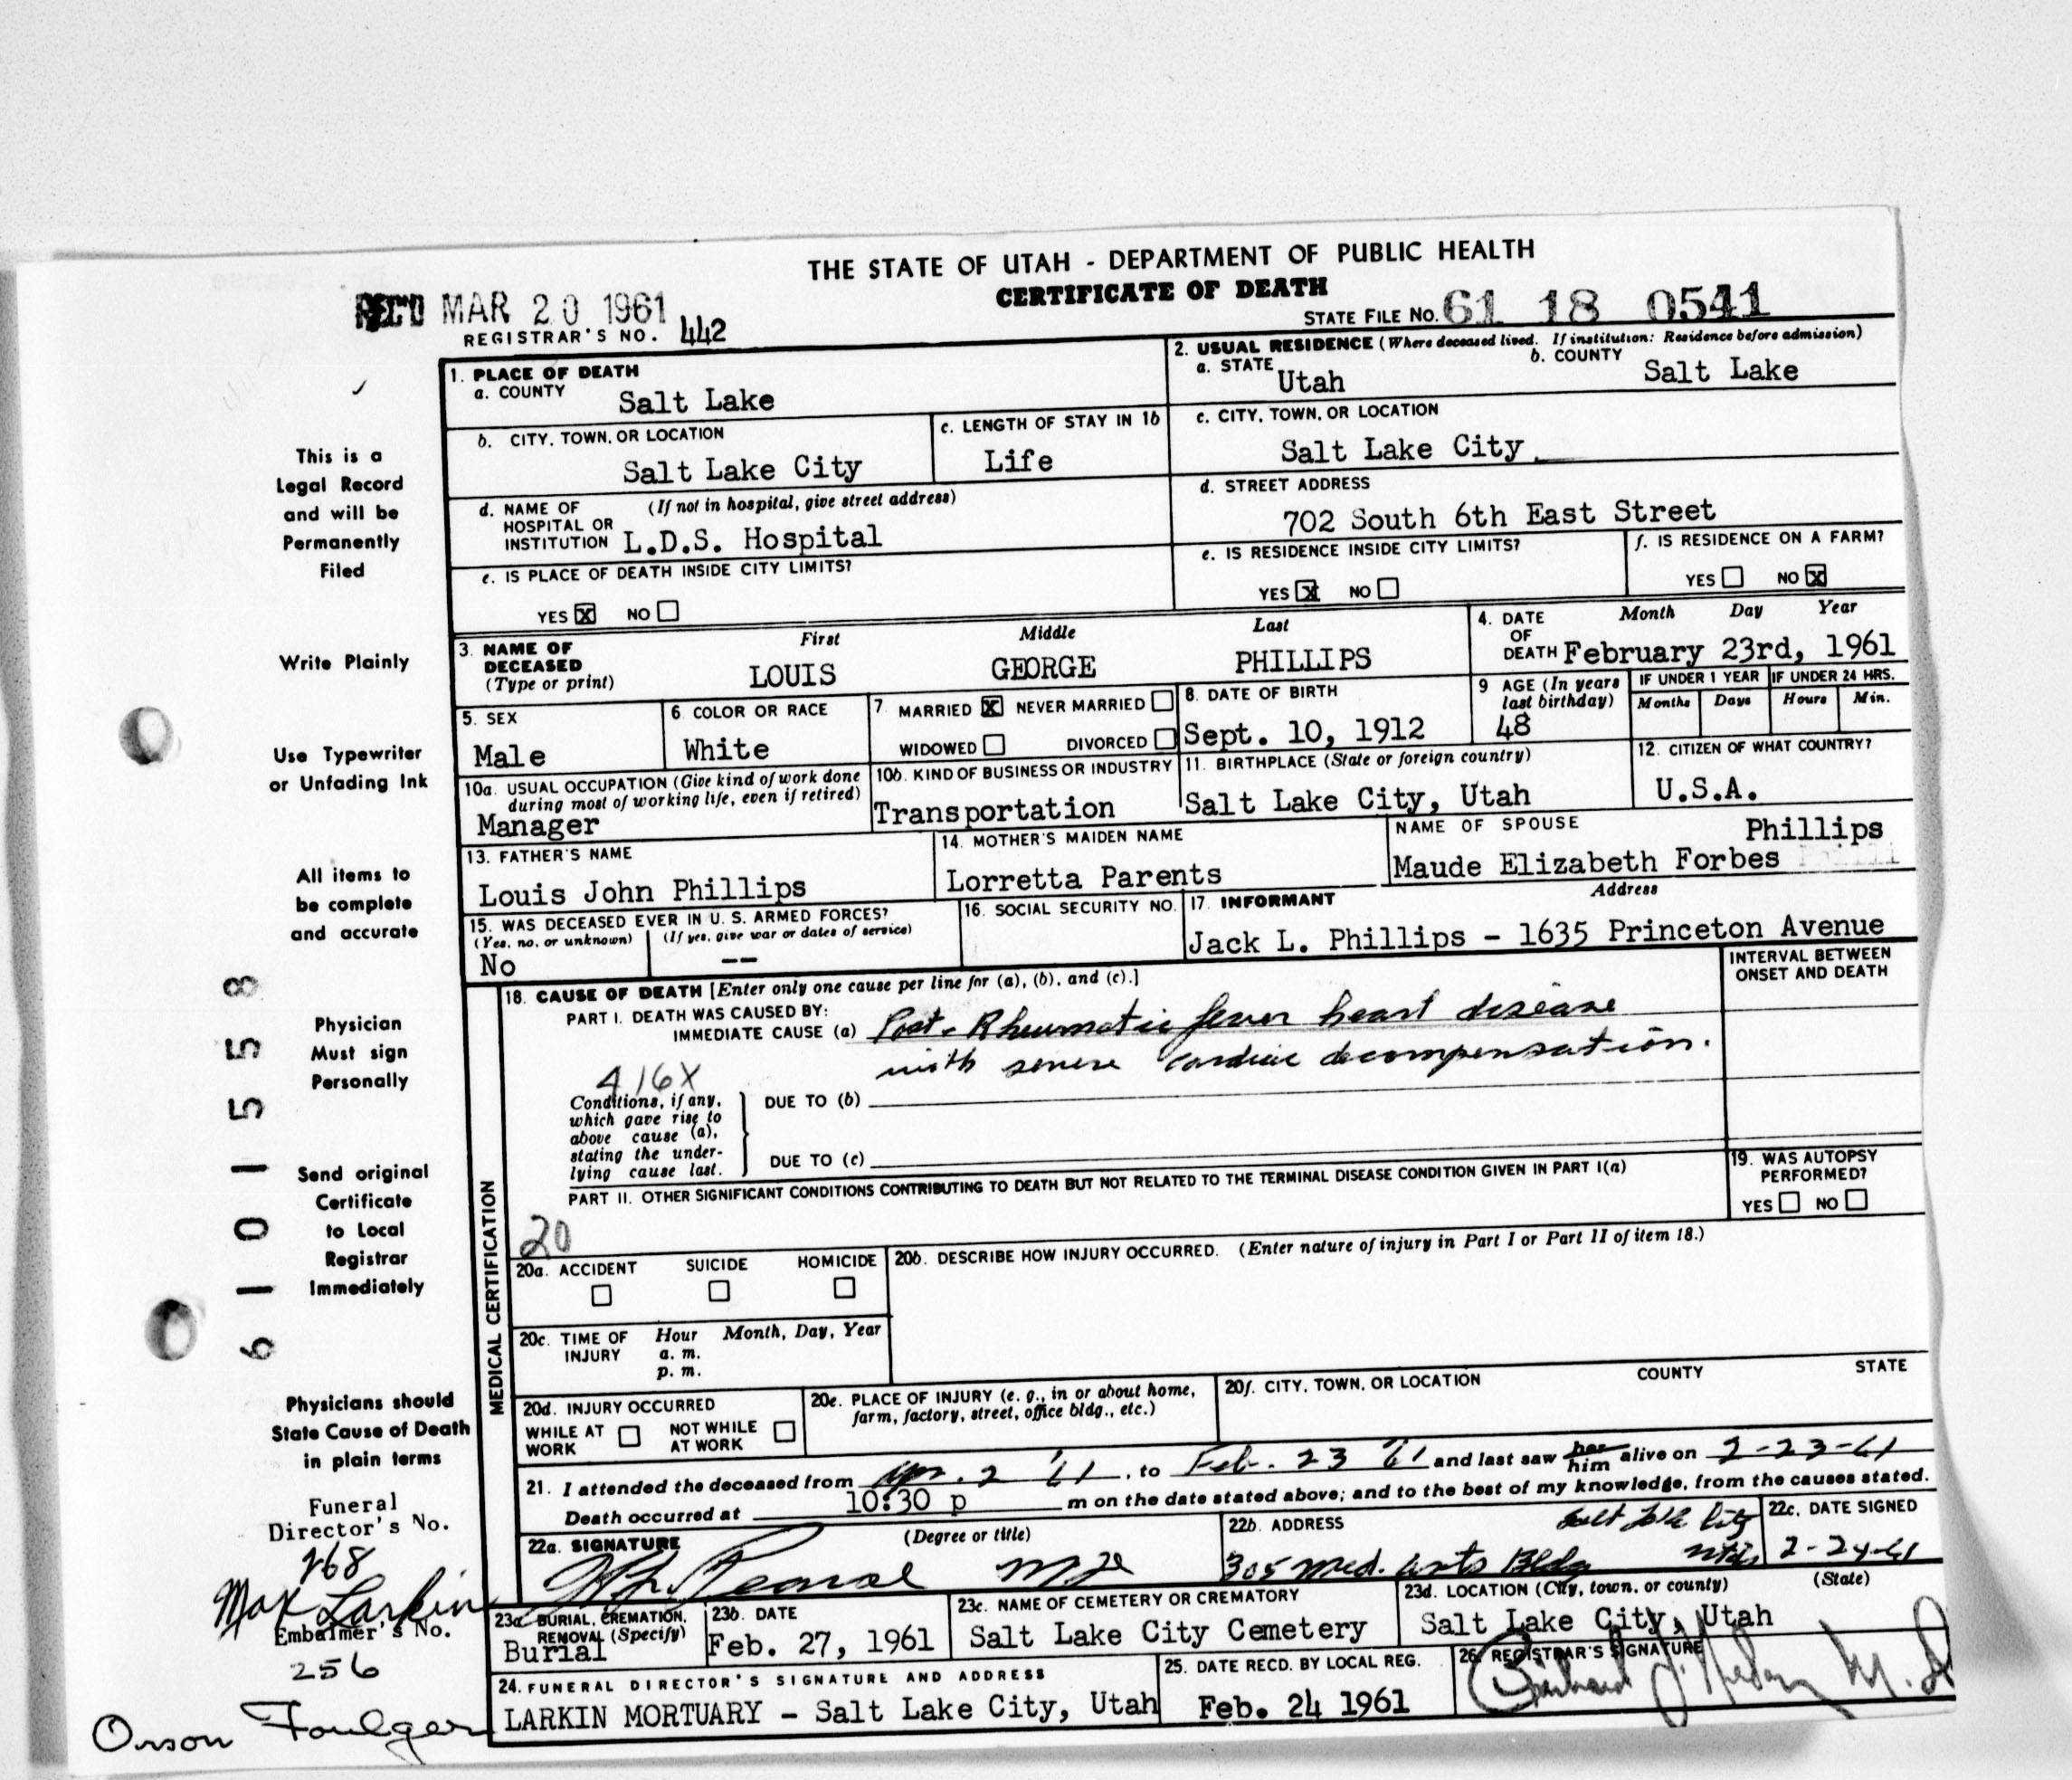 THE STATE OF UTAH - DEPARTMENT OF PUBLIC HEALTH
CERTIFICATE OF DEATH
REC'D MAR 20 1961
REGISTRAR'S NO. 442
STATE FILE NO. 61 18 0541
1. PLACE OF DEATH
a. COUNTY Salt Lake
2. USUAL RESIDENCE (Where deceased lived. If institution: Residence before admission)
a. STATE Utah b. COUNTY Salt Lake
b. CITY, TOWN, OR LOCATION Salt Lake City
c. LENGTH OF STAY IN 1b Life
c. CITY, TOWN, OR LOCATION Salt Lake City
d. NAME OF HOSPITAL OR INSTITUTION (If not in hospital, give street address) L.D.S. Hospital
d. STREET ADDRESS 702 South 6th East Street
e. IS PLACE OF DEATH INSIDE CITY LIMITS?
YES X NO
e. IS RESIDENCE INSIDE CITY LIMITS?
YES X NO
f. IS RESIDENCE ON A FARM?
YES NO X
3. NAME OF DECEASED (Type or print)
First Middle Last
LOUIS GEORGE PHILLIPS
4. DATE OF DEATH Month Day Year
February 23rd, 1961
5. SEX Male
6. COLOR OR RACE White
7. MARRIED X NEVER MARRIED
WIDOWED DIVORCED
8. DATE OF BIRTH Sept. 10, 1912
9 AGE (In years last birthday) 48
IF UNDER 1 YEAR Months Days
IF UNDER 24 HRS. Hours Min.
10a. USUAL OCCUPATION (Give kind of work done during most of working life, even if retired)
Manager
10b. KIND OF BUSINESS OR INDUSTRY
Transportation
11. BIRTHPLACE (State or foreign country)
Salt Lake City, Utah
12. CITIZEN OF WHAT COUNTRY?
U.S.A.
13. FATHER'S NAME
Louis John Phillips
14. MOTHER'S MAIDEN NAME
Lorretta Parents
NAME OF SPOUSE Phillips
Maude Elizabeth Forbes
15. WAS DECEASED EVER IN U. S. ARMED FORCES?
(Yes, no, or unknown) (If yes, give war or dates of service)
No --
16. SOCIAL SECURITY NO.
17. INFORMANT Address
Jack L. Phillips - 1635 Princeton Avenue
MEDICAL CERTIFICATION
18. CAUSE OF DEATH [Enter only one cause per line for (a), (b), and (c).]
INTERVAL BETWEEN ONSET AND DEATH
PART I. DEATH WAS CAUSED BY:
IMMEDIATE CAUSE (a) Post-Rheumatic fever heart disease
with severe cardiac decompensation.
416X
Conditions, if any, which gave rise to above cause (a), stating the underlying cause last.
DUE TO (b)
DUE TO (c)
PART II. OTHER SIGNIFICANT CONDITIONS CONTRIBUTING TO DEATH BUT NOT RELATED TO THE TERMINAL DISEASE CONDITION GIVEN IN PART I(a)
20
19. WAS AUTOPSY PERFORMED?
YES NO
20a. ACCIDENT SUICIDE HOMICIDE
20b. DESCRIBE HOW INJURY OCCURRED. (Enter nature of injury in Part I or Part II of item 18.)
20c. TIME OF INJURY Hour Month, Day, Year
a. m.
p. m.
20d. INJURY OCCURRED
WHILE AT WORK NOT WHILE AT WORK
20e. PLACE OF INJURY (e. g., in or about home, farm, factory, street, office bldg., etc.)
20f. CITY, TOWN, OR LOCATION COUNTY STATE
21. I attended the deceased from 2 '61, to Feb. 23 '61 and last saw her him alive on 2-23-61
Death occurred at 10:30 p m on the date stated above; and to the best of my knowledge, from the causes stated.
22a. SIGNATURE (Degree or title)
Pearse M.D.
22b. ADDRESS
305 Med. Arts Bldg Salt Lake City Utah
22c. DATE SIGNED
2-24-61
23a. BURIAL, CREMATION, REMOVAL (Specify)
Burial
23b. DATE
Feb. 27, 1961
23c. NAME OF CEMETERY OR CREMATORY
Salt Lake City Cemetery
23d. LOCATION (City, town, or county) (State)
Salt Lake City, Utah
24. FUNERAL DIRECTOR'S SIGNATURE AND ADDRESS
LARKIN MORTUARY - Salt Lake City, Utah
25. DATE RECD. BY LOCAL REG.
Feb. 24 1961
26. REGISTRAR'S SIGNATURE
M.D.
This is a
Legal Record
and will be
Permanently
Filed
Write Plainly
Use Typewriter
or Unfading Ink
All items to
be complete
and accurate
Physician
Must sign
Personally
Send original
Certificate
to Local
Registrar
Immediately
Physicians should
State Cause of Death
in plain terms
61015558
Funeral
Director's No.
268
Max Larkin
Embalmer's No.
256
Orson Foulger